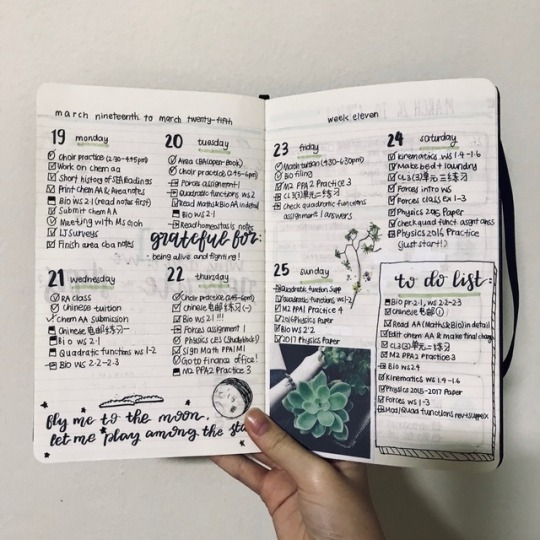 march nineteenth to march twenty-fifth
19 monday
Choir practice (2:30-4:45pm)
Work on chem aa
Short history of readings
Print chem AA & Area notes
Bio ws 2-1 (read notes first)
Submit chem AA
Meeting with Ms Goh
IJ Surveys
Finish area cba notes
20 tuesday
Area (BA1 open-Book)
Choir practice (2:45-6pm)
Forces assignment 1
Quadratic functions ws 2
Read Maths & Bio AA in detail
Bio ws 2-1
Read homeostasis notes
grateful for:
being alive and fighting!
21 wednesday
RA class
Chinese tuition
Chem AA submission
Chinese 电邮练习一
Bio ws 2-1
Quadratic functions ws 1-2
Bio ws 2.2-2.3
22 thursday
Choir practice (2:45-6pm)
Chinese 电邮练习(一)
Bio ws 2.1 !!!
Forces assignment 1
Physics CES (Study block)
Sign Math PPA1 M1
Go to finance office!
M2 PPA2 Practice 3
fly me to the moon,
let me play among the sta
week eleven
23 friday
Math tuition (4:30-6:30pm)
Bio filing
M2 PPA2 Practice 3
CL3(3)单元二练习
Check quadratic functions
assignment 1 answers
24 saturday
Kinematics ws 1.4-1.6
Make bed + laundry
CL3(3)单元二练习
Forces intro ws
Forces class ex 1-3
Physics 2015 Paper
Check quad funct. assgnt ans
Physics 2016 Practice
(just start!)
25 sunday
Quadratic function Supp
Quadratic functions ws 1-2
M2 PPA1 Practice 4
2016 Physics Paper
Bio ws 2.2
2017 Physics Paper
to do list:
Bio pr 2-1, ws 2.2-2.3
Chinese 电邮①
Read AA (Maths & Bio) in detail
Edit chem AA & make final change
CL3(3)单元二练习
M2 PPA2 Practice 3
Bio ws 2.4
Kinematics ws 1.4-1.6
Physics 2015-2017 Paper
Forces ws 1-3
Quad functions